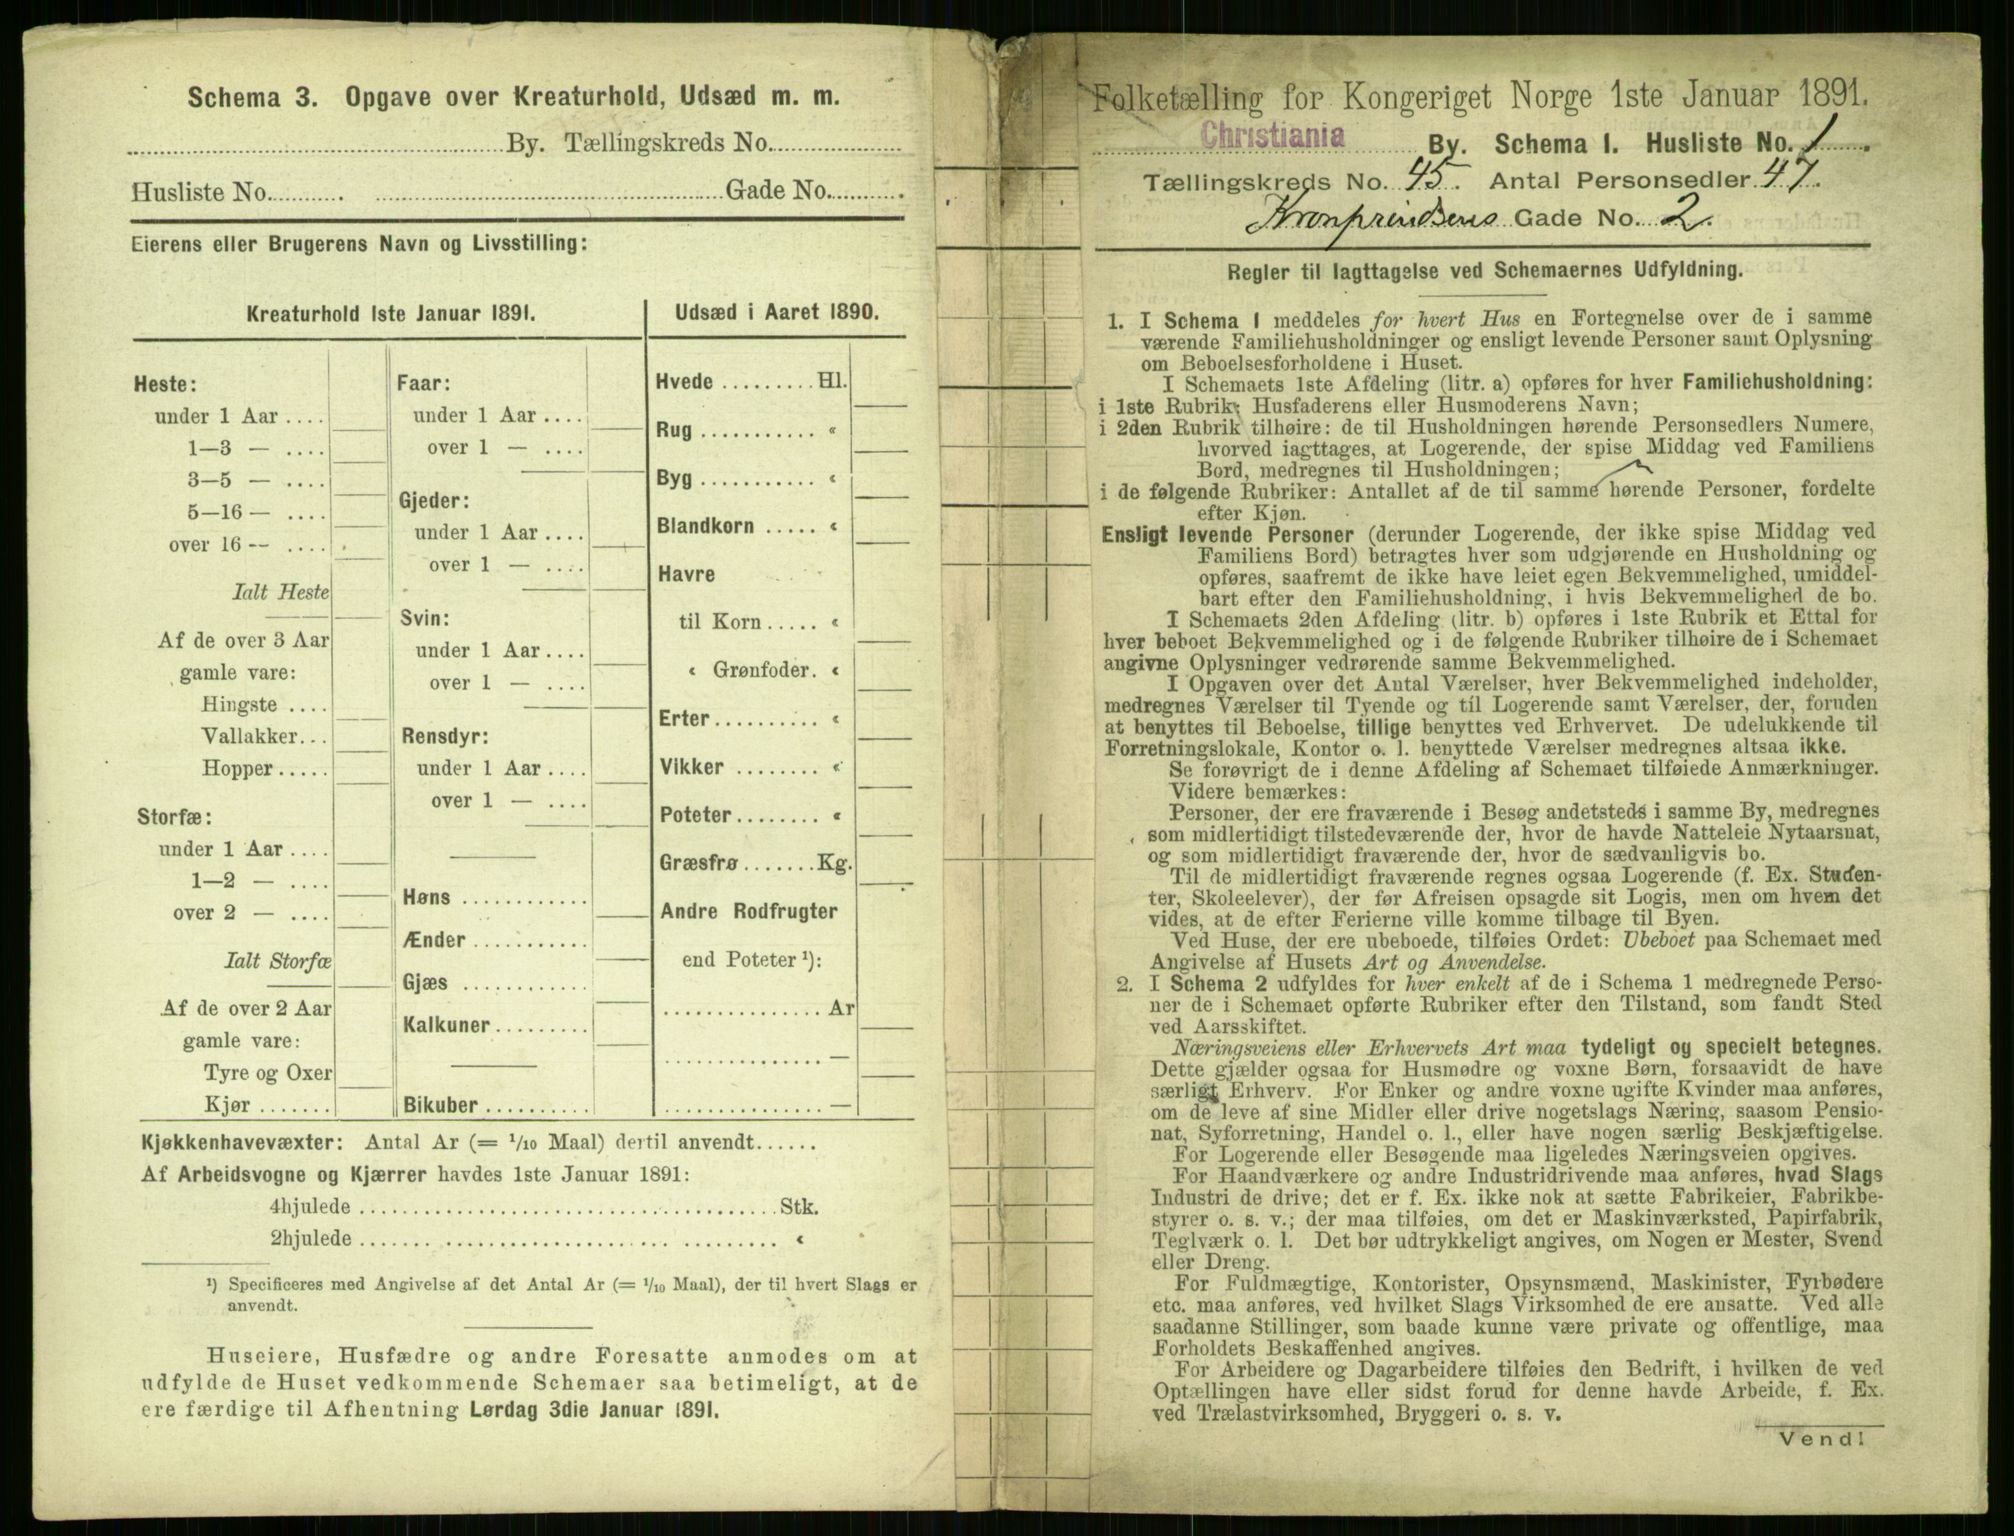 Schema 3. Opgave over Kreaturhold, Udsæd m. m.
By. Tællingskreds No.
Husliste No. Gade No.
Eierens eller Brugerens Navn og Livsstilling:
Kreaturhold 1ste Januar 1891.
Heste:
under 1 Aar
1—3 —
3—5 —
5—16 —
over 16 —
Ialt Heste
Af de over 3 Aar
gamle vare:
Hingste
Vallakker
Hopper
Storfæ:
under 1 Aar
1—2 —
over 2 —
Ialt Storfæ
Af de over 2 Aar
gamle vare:
Tyre og Oxer
Kjør
Faar:
under 1 Aar
over 1 —
Gjeder:
under 1 Aar
over 1 —
Svin:
under 1 Aar
over 1 —
Rensdyr:
under 1 Aar
over 1 —
Høns
Ænder
Gjæs
Kalkuner
Bikuber
Udsæd i Aaret 1890.
Hvede Hl.
Rug "
Byg "
Blandkorn "
Havre
til Korn "
" Grønfoder. "
Erter "
Vikker "
Poteter "
Græsfrø Kg.
Andre Rodfrugter
end Poteter ¹):
Ar
—
—
Kjøkkenhavevæxter: Antal Ar (= 1/10 Maal) dertil anvendt
Af Arbeidsvogne og Kjærrer havdes 1ste Januar 1891:
4hjulede Stk.
2hjulede "
¹) Specificeres med Angivelse af det Antal Ar (= 1/10 Maal), der til hvert Slags er
anvendt.
Huseiere, Husfædre og andre Foresatte anmodes om at
udfylde de Huset vedkommende Schemaer saa betimeligt, at de
ere færdige til Afhentning Lørdag 3die Januar 1891.
Folketælling for Kongeriget Norge 1ste Januar 1891.
Christiania By. Schema 1. Husliste No. 1
Tællingskreds No. 45. Antal Personsedler 47.
Kronprindsens Gade No. 2.
Regler til Iagttagelse ved Schemaernes Udfyldning.
1. I Schema 1 meddeles for hvert Hus en Fortegnelse over de i samme
værende Familiehusholdninger og ensligt levende Personer samt Oplysning
om Beboelsesforholdene i Huset.
I Schemaets 1ste Afdeling (litr. a) opføres for hver Familiehusholdning:
i 1ste Rubrik: Husfaderens eller Husmoderens Navn;
i 2den Rubrik tilhøire: de til Husholdningen hørende Personsedlers Numere,
hvorved iagttages, at Logerende, der spise Middag ved Familiens
Bord, medregnes til Husholdningen;
i de følgende Rubriker: Antallet af de til samme hørende Personer, fordelte
efter Kjøn.
Ensligt levende Personer (derunder Logerende, der ikke spise Middag ved
Familiens Bord) betragtes hver som udgjørende en Husholdning og
opføres, saafremt de ikke have leiet egen Bekvemmelighed, umiddel-
bart efter den Familiehusholdning, i hvis Bekvemmelighed de bo.
I Schemaets 2den Afdeling (litr. b) opføres i 1ste Rubrik et Ettal for
hver beboet Bekvemmelighed og i de følgende Rubriker tilhøire de i Schemaet
angivne Oplysninger vedrørende samme Bekvemmelighed.
I Opgaven over det Antal Værelser, hver Bekvemmelighed indeholder,
medregnes Værelser til Tyende og til Logerende samt Værelser, der, foruden
at benyttes til Beboelse, tillige benyttes ved Erhvervet. De udelukkende til
Forretningslokale, Kontor o. l. benyttede Værelser medregnes altsaa ikke.
Se forøvrigt de i denne Afdeling af Schemaet tilføiede Anmærkninger.
Videre bemærkes:
Personer, der ere fraværende i Besøg andetsteds i samme By, medregnes
som midlertidigt tilstedeværende der, hvor de havde Natteleie Nytaarsnat,
og som midlertidigt fraværende der, hvor de sædvanligvis bo.
Til de midlertidigt fraværende regnes ogsaa Logerende (f. Ex. Studen-
ter, Skoleelever), der før Afreisen opsagde sit Logis, men om hvem det
vides, at de efter Ferierne ville komme tilbage til Byen.
Ved Huse, der ere ubeboede, tilføies Ordet: Ubeboet paa Schemaet med
Angivelse af Husets Art og Anvendelse.
2. I Schema 2 udfyldes for hver enkelt af de i Schema 1 medregnede Perso-
ner de i Schemaet opførte Rubriker efter den Tilstand, som fandt Sted
ved Aarsskiftet.
Næringsveiens eller Erhvervets Art maa tydeligt og specielt betegnes.
Dette gjælder ogsaa for Husmødre og voxne Børn, forsaavidt de have
særligt Erhverv. For Enker og andre voxne ugifte Kvinder maa anføres,
om de leve af sine Midler eller drive nogetslags Næring, saasom Pensio-
nat, Syforretning, Handel o. l., eller have nogen særlig Beskjæftigelse.
For Logerende eller Besøgende maa ligeledes Næringsveien opgives.
For Haandværkere og andre Industridrivende maa anføres, hvad Slags
Industri de drive; det er f. Ex. ikke nok at sætte Fabrikeier, Fabrikbe-
styrer o. s. v.; der maa tilføies, om det er Maskinværksted, Papirfabrik,
Teglværk o. l. Det bør udtrykkeligt angives, om Nogen er Mester, Svend
eller Dreng.
For Fuldmægtige, Kontorister, Opsynsmænd, Maskinister, Fyrbødere
etc. maa anføres, ved hvilket Slags Virksomhed de ere ansatte. Ved alle
saadanne Stillinger, som baade kunne være private og offentlige, maa
Forholdets Beskaffenhed angives.
For Arbeidere og Dagarbeidere tilføies den Bedrift, i hvilken de ved
Optællingen have eller sidst forud for denne havde Arbeide, f. Ex.
ved Trælastvirksomhed, Bryggeri o. s. v.
Vend!